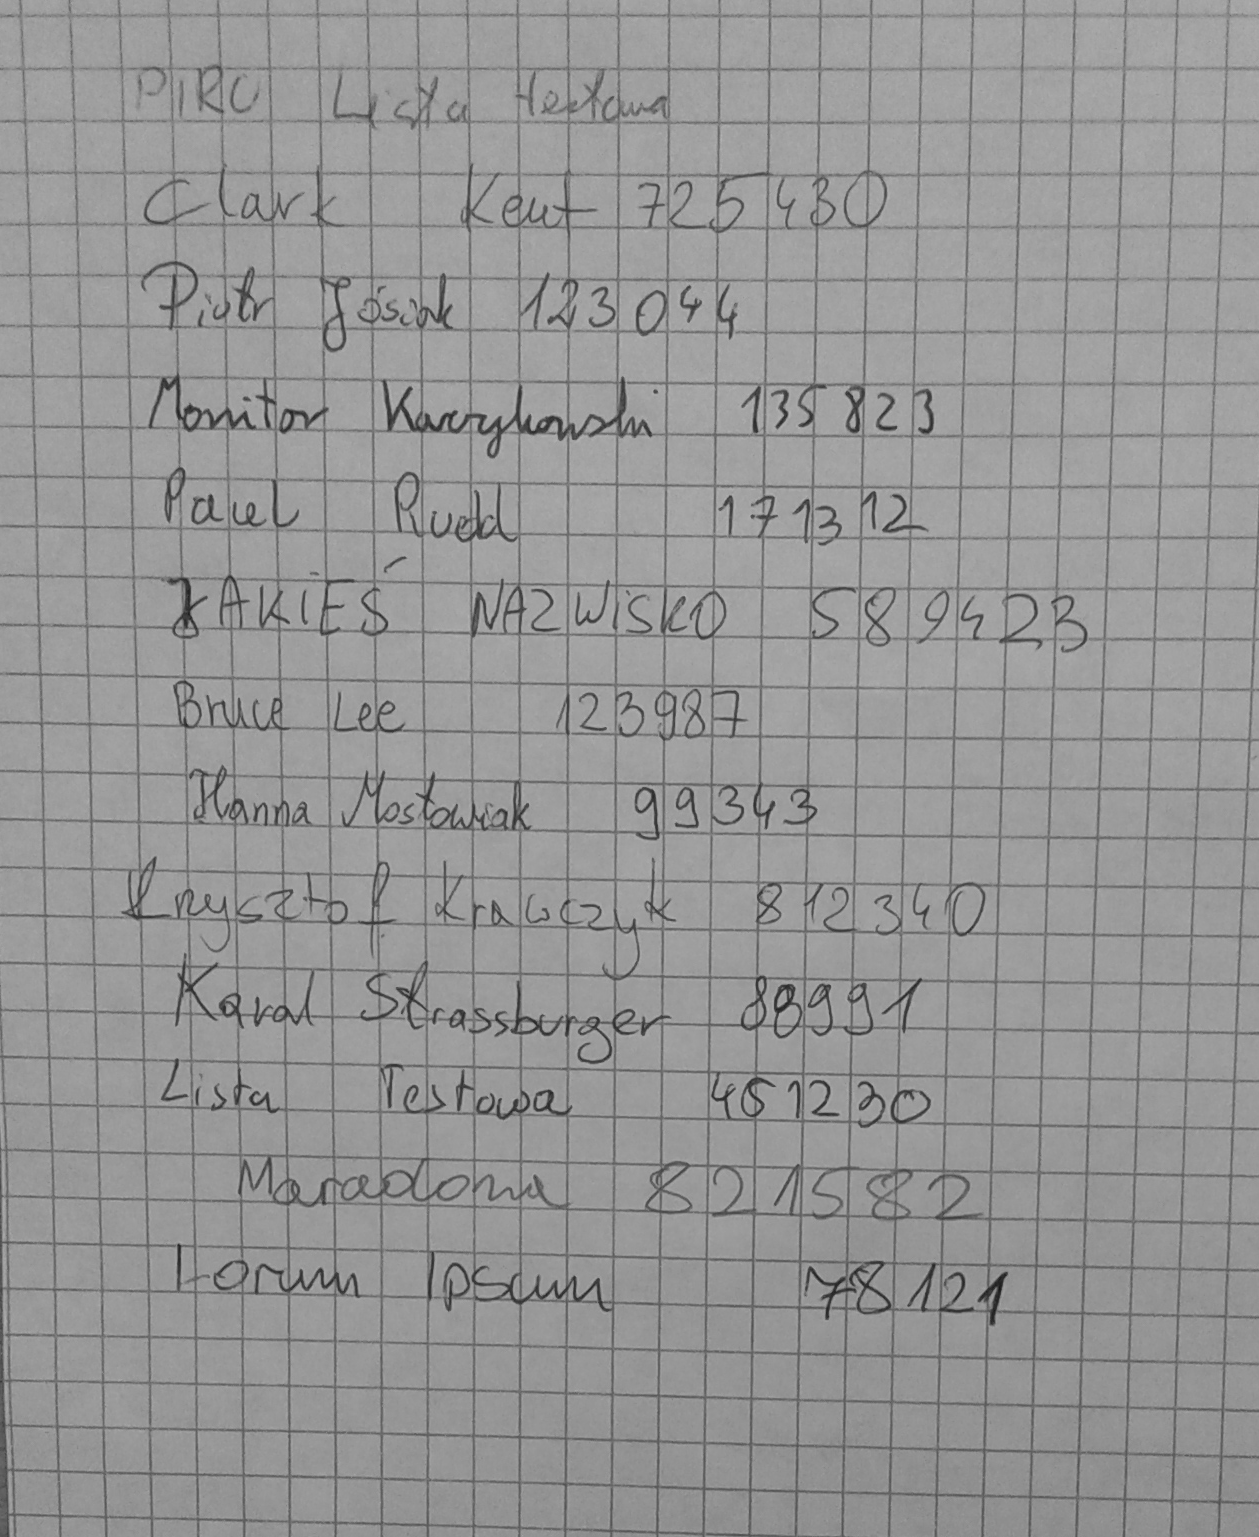 PIRO Lista testowa
Clark Kent 725430
Piotr Jósiak 123044
Monitor Karrykowski 135823
Paul Rudd 171312
JAKIEŚ NAZWISKO 589423
Bruce Lee 123987
Hanna Mostowiak 99343
Krzysztof Krawczyk 812340
Karol Strassburger 88991
Lista Testowa 451230
Maradona 821582
Lorum Ipsum 78121